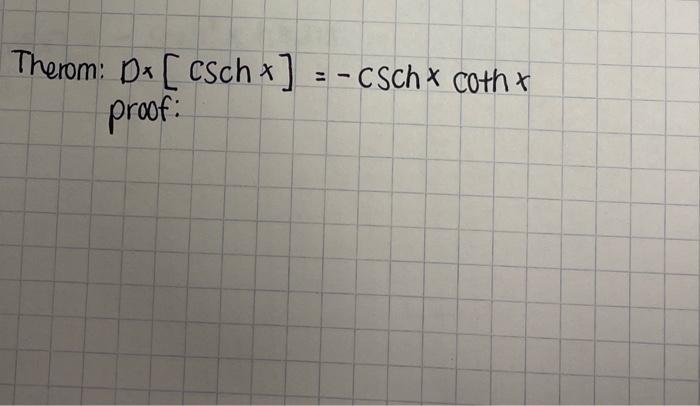 Therom: Dx [ csch x ] = - csch x coth x
proof: